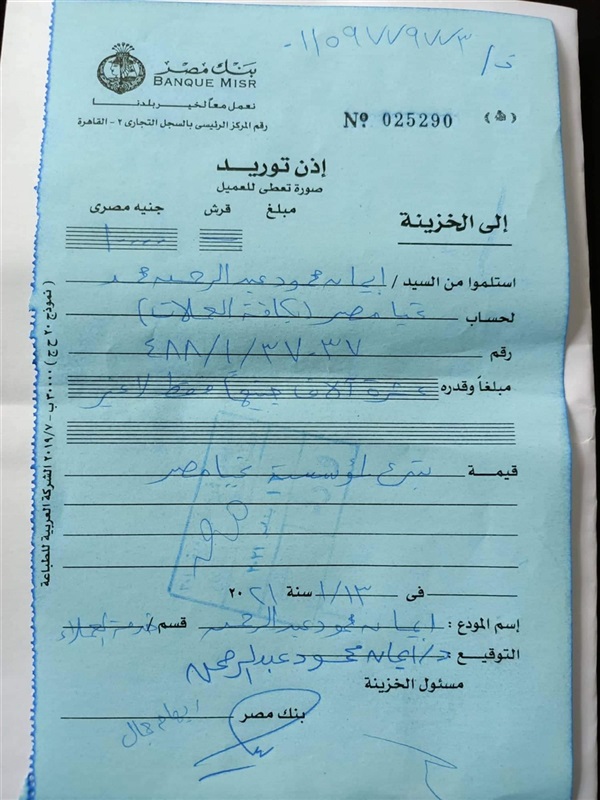 ت/ ٠١١٥٩٧٧٩٧٧٣
بنك مصر
BANQUE MISR
نعمل معاً لخير بلدنا
رقم المركز الرئيسى بالسجل التجارى ٢ - القاهرة
Nº 025290
إذن توريد
صورة تعطى للعميل
إلى الخزينة
مبلغ
قرش جنيه مصرى
١٠٠٠٠
استلموا من السيد / إيمان محمود عبد الرحمن محمد
لحساب تحيا مصر (بكافة العملات)
رقم ٤٨٨/١/٣٧٠٣٧
مبلغاً وقدره عشرة آلاف جنيهاً فقط لا غير
قيمة تبرع لمؤسسة تحيا مصر
فى ١/١٣ سنة ٢٠٢١
إسم المودع : إيمان محمود عبد الرحمن قسم / خدمة العملاء
التوقيع : د/ إيمان محمود عبد الرحمن
مسئول الخزينة
بنك مصر
( نموذج ٢٠ ح ج ) ٣٠٠٠٠ ب - ٢٠١٩/٧ الشركة العربية للطباعة